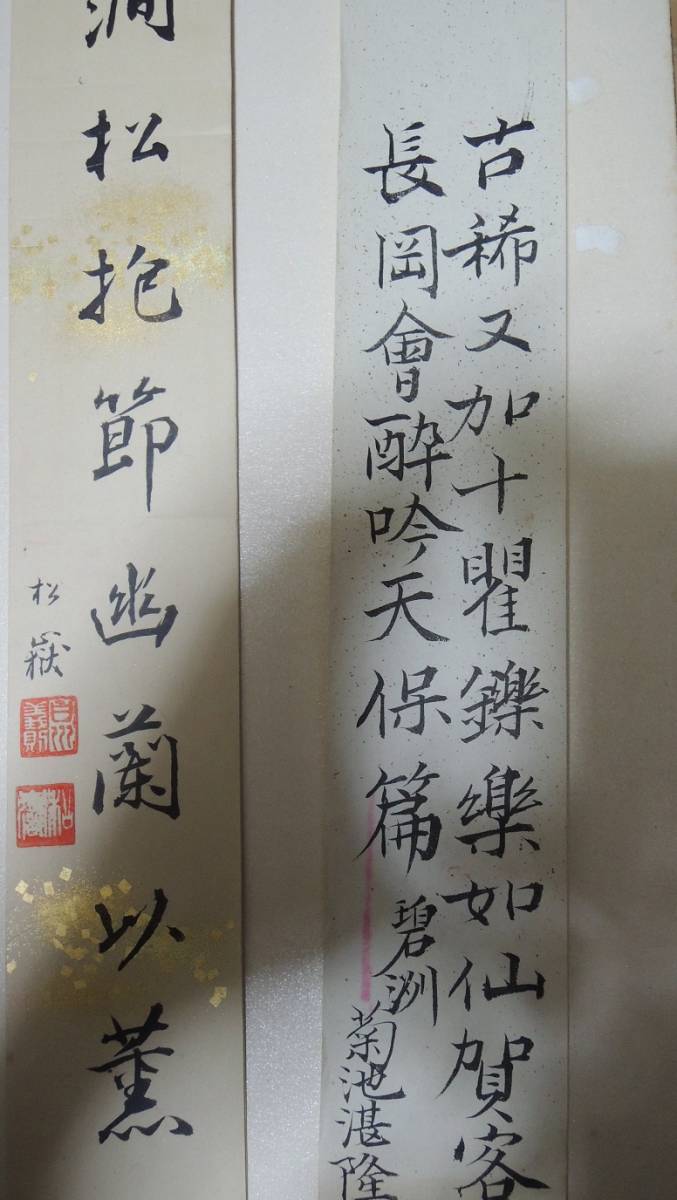 古稀又加十矍鑠樂如仙賀客
長岡會酔吟天保篇
碧洲
菊池湛隆
澗松抱節幽蘭以薫
松嶽